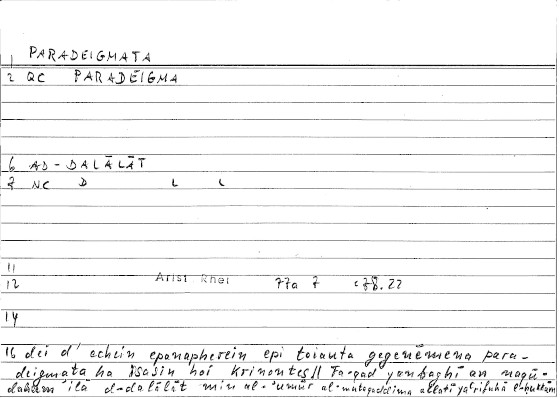 1 PARADEIGMATA
2 QC PARADĒIGMA
6 AD-DALĀLĀT
7 NC D L L
11
12 Arist Rhet 77a 7 : 22
14
16 dei d' echein epanapherein epi toiauta gegenēmena para-
deigmata ha isasin hoi krinontes // Fa-qad yanbaghī an naqū-
dahum ilā d-dalālāt min al-'umūr al-mutaqaddima allatī ya'rifuhā